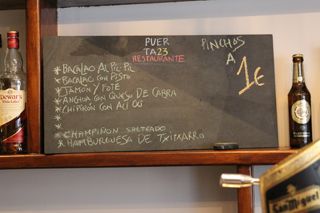 PUER
TA23
RESTAURANTE
PINCHOS
A
1€
* BACALAO AL PIL-PIL
* BACALAO CON PISTO
* JAMON Y POTE
* ANCHOA CON QUESO DE CABRA
* CHIPIRON CON ALI OLI
*
*
* CHAMPIÑON SALTEADO
* HAMBURGUESA DE TXIMARRO
Dewar's
San Miguel